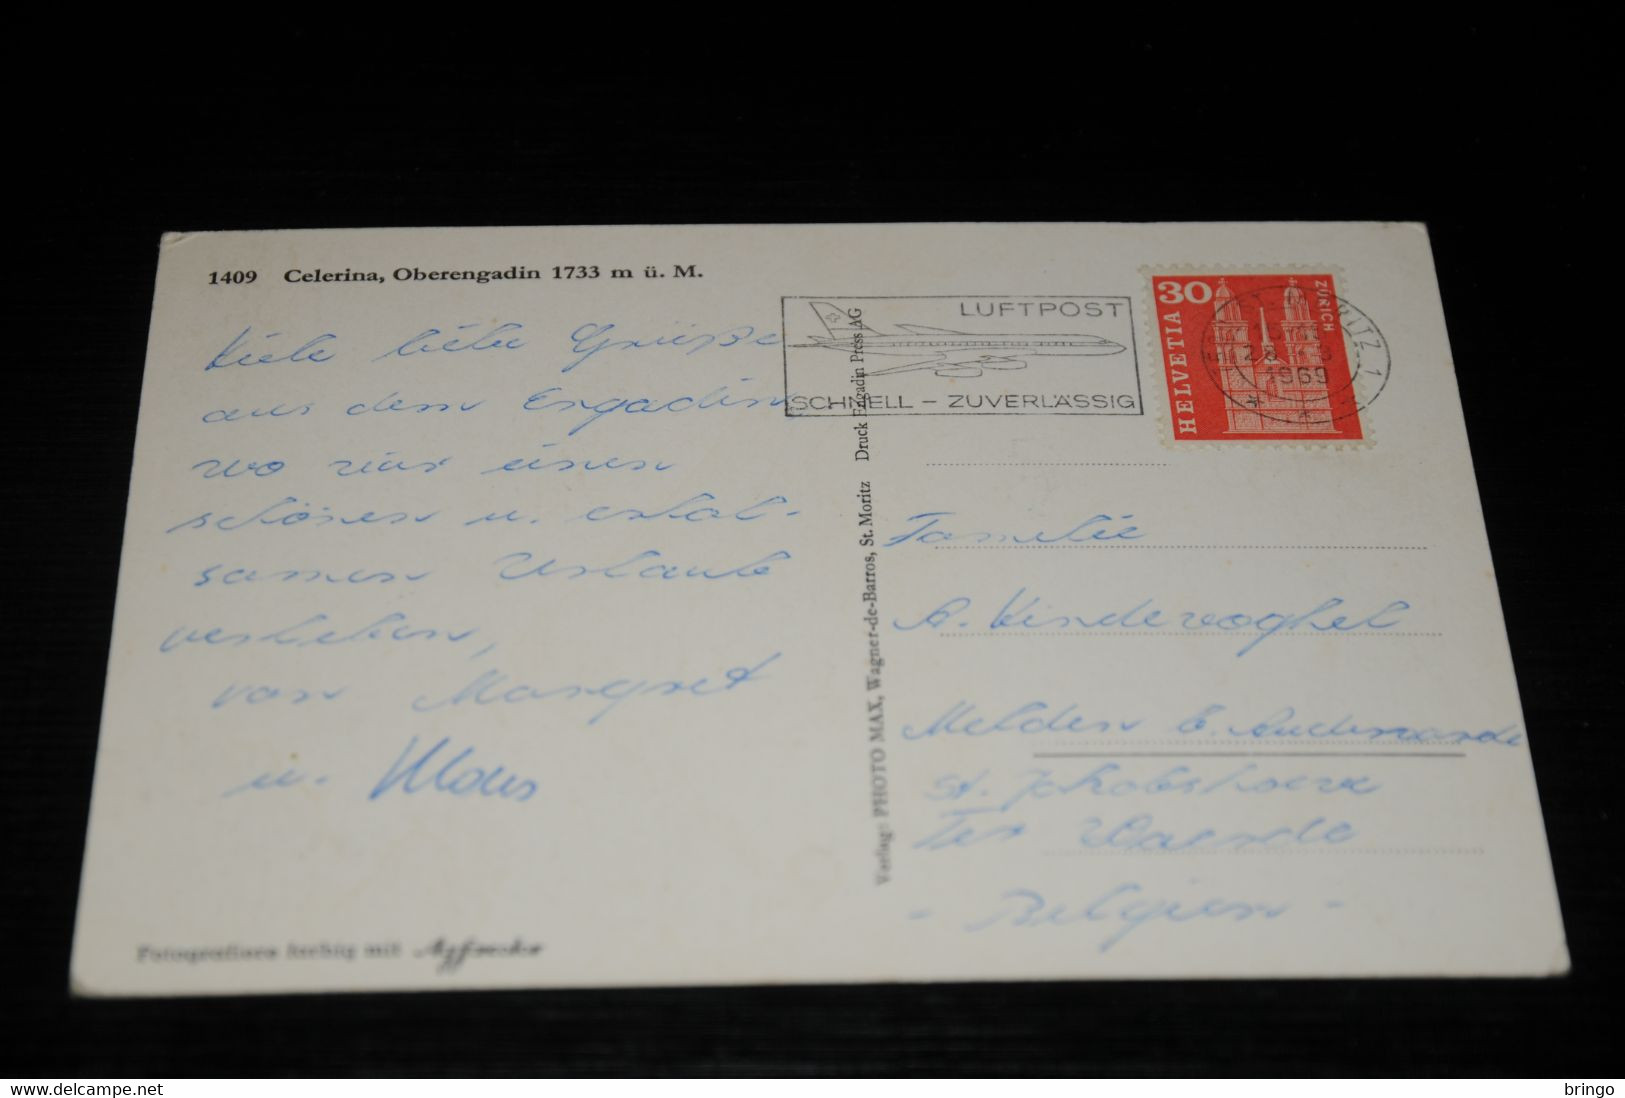 1409 Celerina, Oberengadin 1733 m ü. M.
Viele liebe Grüße
aus dem Engadin,
wo wir einen
schönen u. erhol-
samen Urlaub
verleben,
von Margret
u. Klaus
Fotografiere farbig mit
Verlag: PHOTO MAX, Wagner-de-Barros, St. Moritz Druck Engadin Press AG
LUFTPOST
SCHNELL – ZUVERLÄSSIG
30
HELVETIA
ZÜRICH
1969
Familie
A. Kindevoghel
Melden b. Audenaarde
St.
Ter
- Belgien -
delcampe.net
bringo